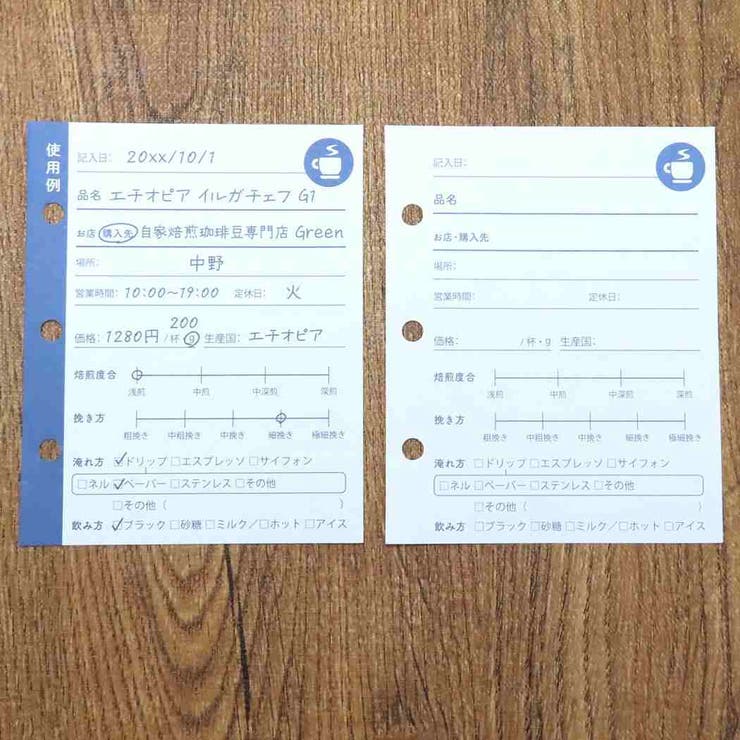 使用例
記入日: 20xx/10/1
品名 エチオピア イルガチェフ G1
お店 購入先 自家焙煎珈琲豆専門店 Green
場所: 中野
営業時間: 10:00~19:00 定休日: 火
200
価格: 1280円 /杯 g 生産国: エチオピア
焙煎度合
浅煎 中煎 中深煎 深煎
挽き方
粗挽き 中粗挽き 中挽き 細挽き 極細挽き
淹れ方 ☑ドリップ □エスプレッソ □サイフォン
□ネル ☑ペーパー □ステンレス □その他
□その他 ( )
飲み方 ☑ブラック □砂糖 □ミルク/□ホット □アイス
記入日:
品名
お店・購入先
場所:
営業時間: 定休日:
価格: /杯・g 生産国:
焙煎度合
浅煎 中煎 中深煎 深煎
挽き方
粗挽き 中粗挽き 中挽き 細挽き 極細挽き
淹れ方 □ドリップ □エスプレッソ □サイフォン
□ネル □ペーパー □ステンレス □その他
□その他 ( )
飲み方 □ブラック □砂糖 □ミルク/□ホット □アイス